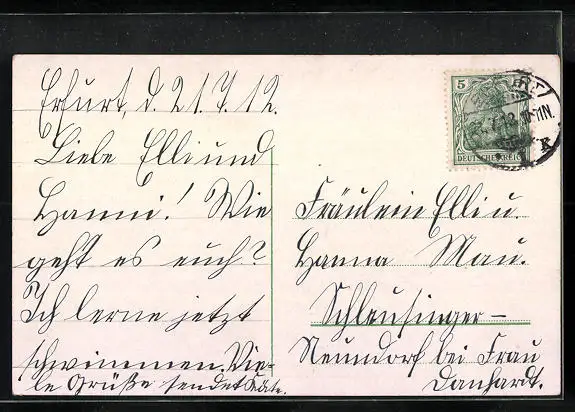 Erfurt, d. 21.7.12.
Liebe Elli und
Hanni! Wie
geht es euch?
Ich lerne jetzt
schwimmen. Vie-
le Grüße sendet Käte.
5
DEUTSCHES REICH
Fräulein Elli u.
Hanna Mau.
Schleusinger-
Neundorf bei Frau
Danhardt.